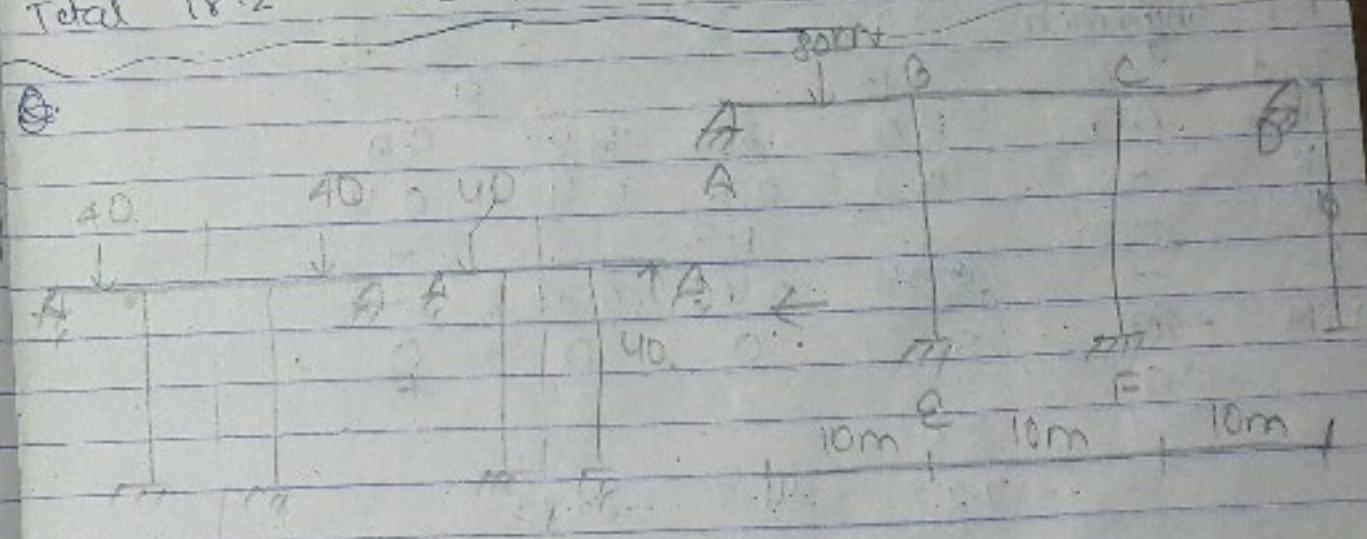 Total 18.2
Q.
80KN
B
C
A
D
40
40
40
40
E
F
10m
10m
10m